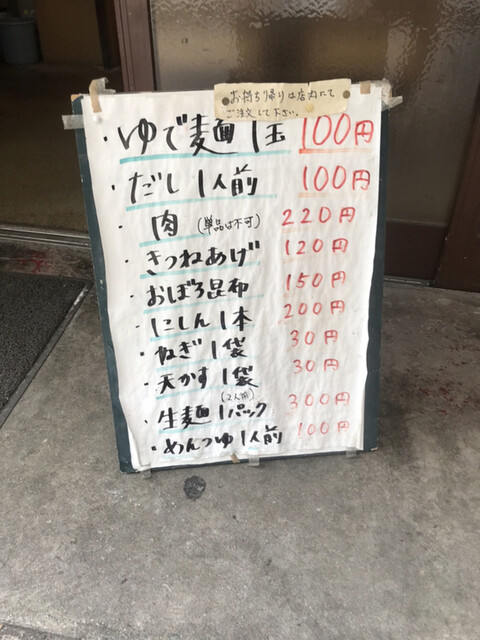 お持ち帰りは店内にて
ご注文して下さい。
・ゆで麺 1玉 100円
・だし 1人前 100円
・肉 (単品は不可) 220円
・きつねあげ 120円
・おぼろ昆布 150円
・にしん 1本 200円
・ねぎ 1袋 30円
・天かす 1袋 30円
・生麺 1パック (2人前) 300円
・めんつゆ 1人前 100円